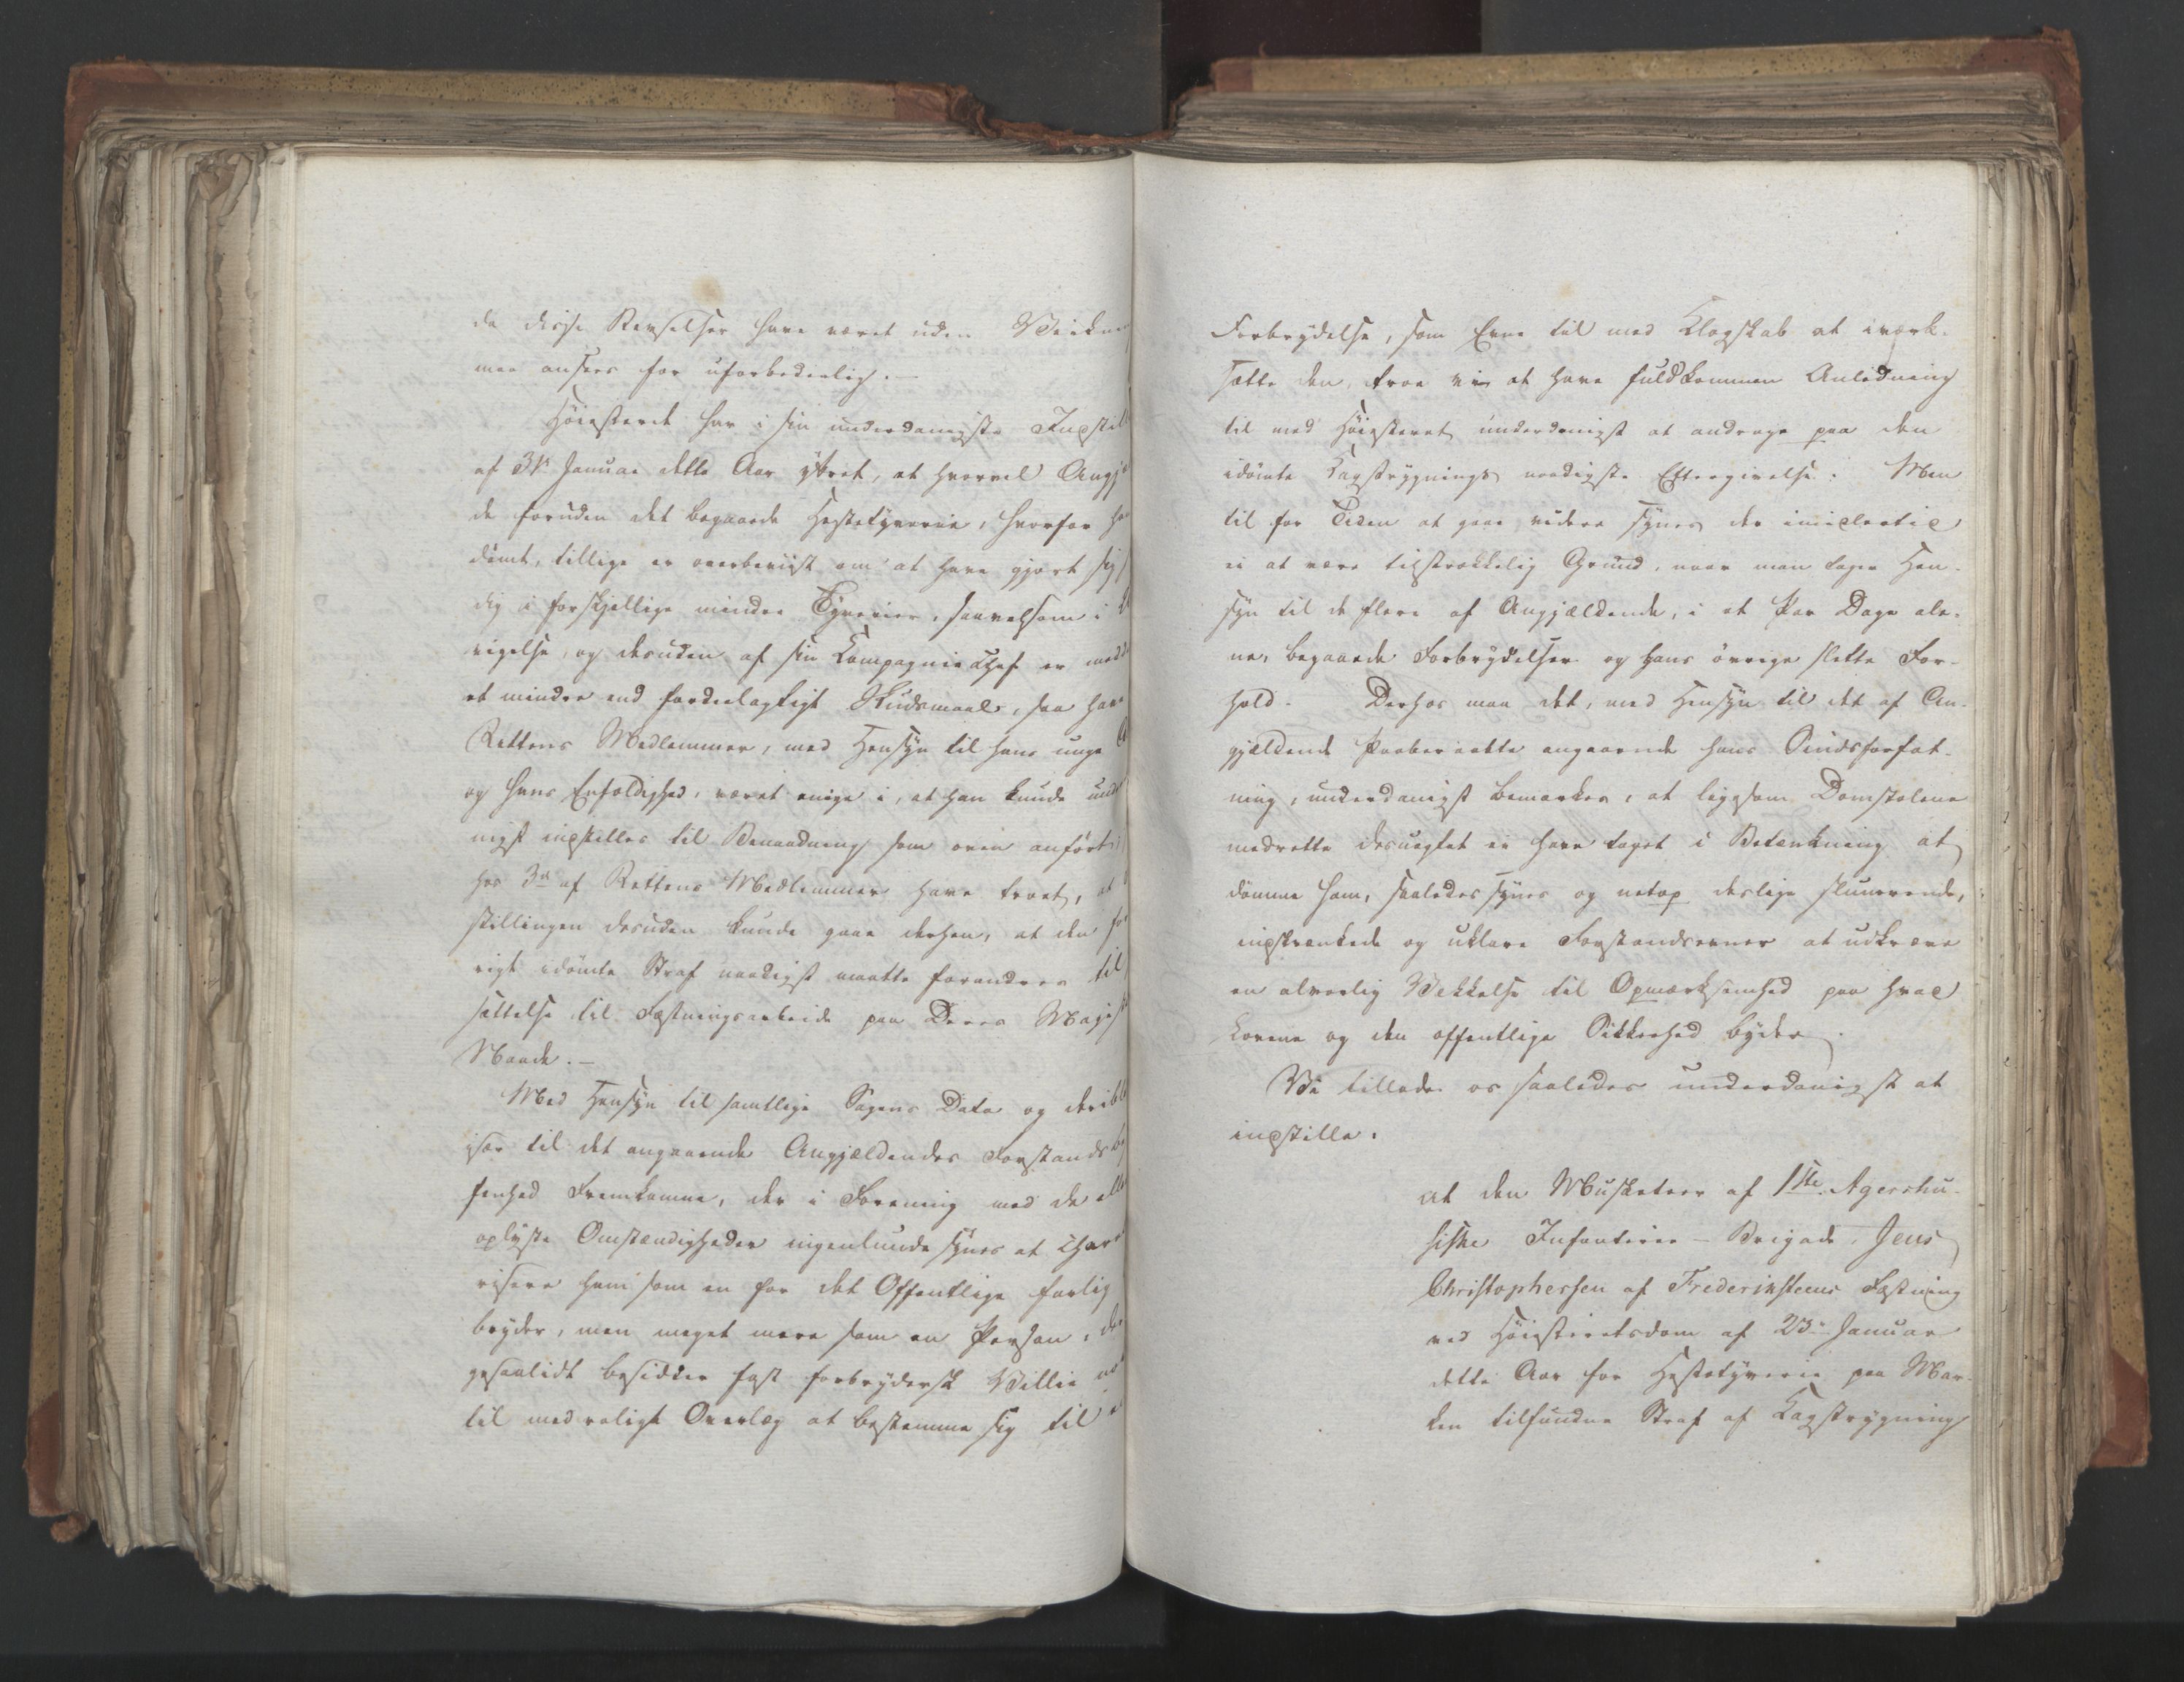 da disse Revselser have været uden Virkning
maa ansees for uforbederlig.—
Høiesteret har i sin underdanigste Indstill
af 31te Januar dette Aar yttret, at hvorvel Angjæ
de foruden det begaaede Hestetyverie, hvorfor han
dømt, tillige er overbeviist om at have gjort sig
dig i forskjellige mindre Tyverier, saavelsom i
vigelse, og desuden af sin Compagniechef er medd
et mindre end fordeelagtigt Skudsmaal, saa have
Rettens Medlemmer, med Hensyn til hans unge
og hans Enfoldighed, været enige i, at han kunde und
nigst indstilles til Benaadning som oven anført,
hos 3de af Rettens Medlemmer have troet, at
stillingen desuden kunde gaae derhen, at den
vigt idømte Straf naadigst maatte forandres til
sættelse til Fæstningsarbeide paa Deres Majest
Naade.—
Med Hensyn til samtlige Sagens Data og deribl
især til det angaaende Angjældendes Forstands
fenhed Fremkomne, der i Forening med de
oplyste Omstændigheder ingenlunde synes at Char
risere ham som en for det Offentlige farlig
bryder, men meget mere som en Person, der
gesaalidt besidder fast forbrydersk Villie
til med roligt Overlæg at bestemme sig til
Forbrydelse, som Evne til med Klogskab at iværk-
sætte den, troe vi at have fuldkommen Anledning
til med Høiesteret underdanigst at andrage paa den
idømte Kagstrygnings naadigste Eftergivelse. Men
til for Tiden at gaae videre synes der imidlertid
ei at være tilstrækkelig Grund, naar man tager Hen-
syn til de flere af Angjældende, i et Par Dage ale-
ne, begaaede Forbrydelser og hans øvrige slette For-
hold. Derhos maa det, med Hensyn til det af An-
gjældende Paaberaabte angaaende hans Sindsforfat-
ning, underdanigst bemærkes, at ligesom Domstolene
medrette desuagtet ei have taget i Betænkning at
dømme ham, saaledes synes og netop deslige slumrende,
indskrænkede og uklare Forstandsevner at udkræve
en alvorlig Vekkelse til Opmærksomhed paa hvad
Lovene og den offentlige Sikkerhed byder.
Vi tillade os saaledes underdanigst at
indstille:
at den Musketeer af 1ste Agershu-
siske Infanterie-Brigade, Jens
Christophersen af Frederiksteens Fæstning
ved Høiesteretsdom af 23de Januar
dette Aar for Hestetyverie paa Mar-
ken tilfundne Straf af Kagstrygning